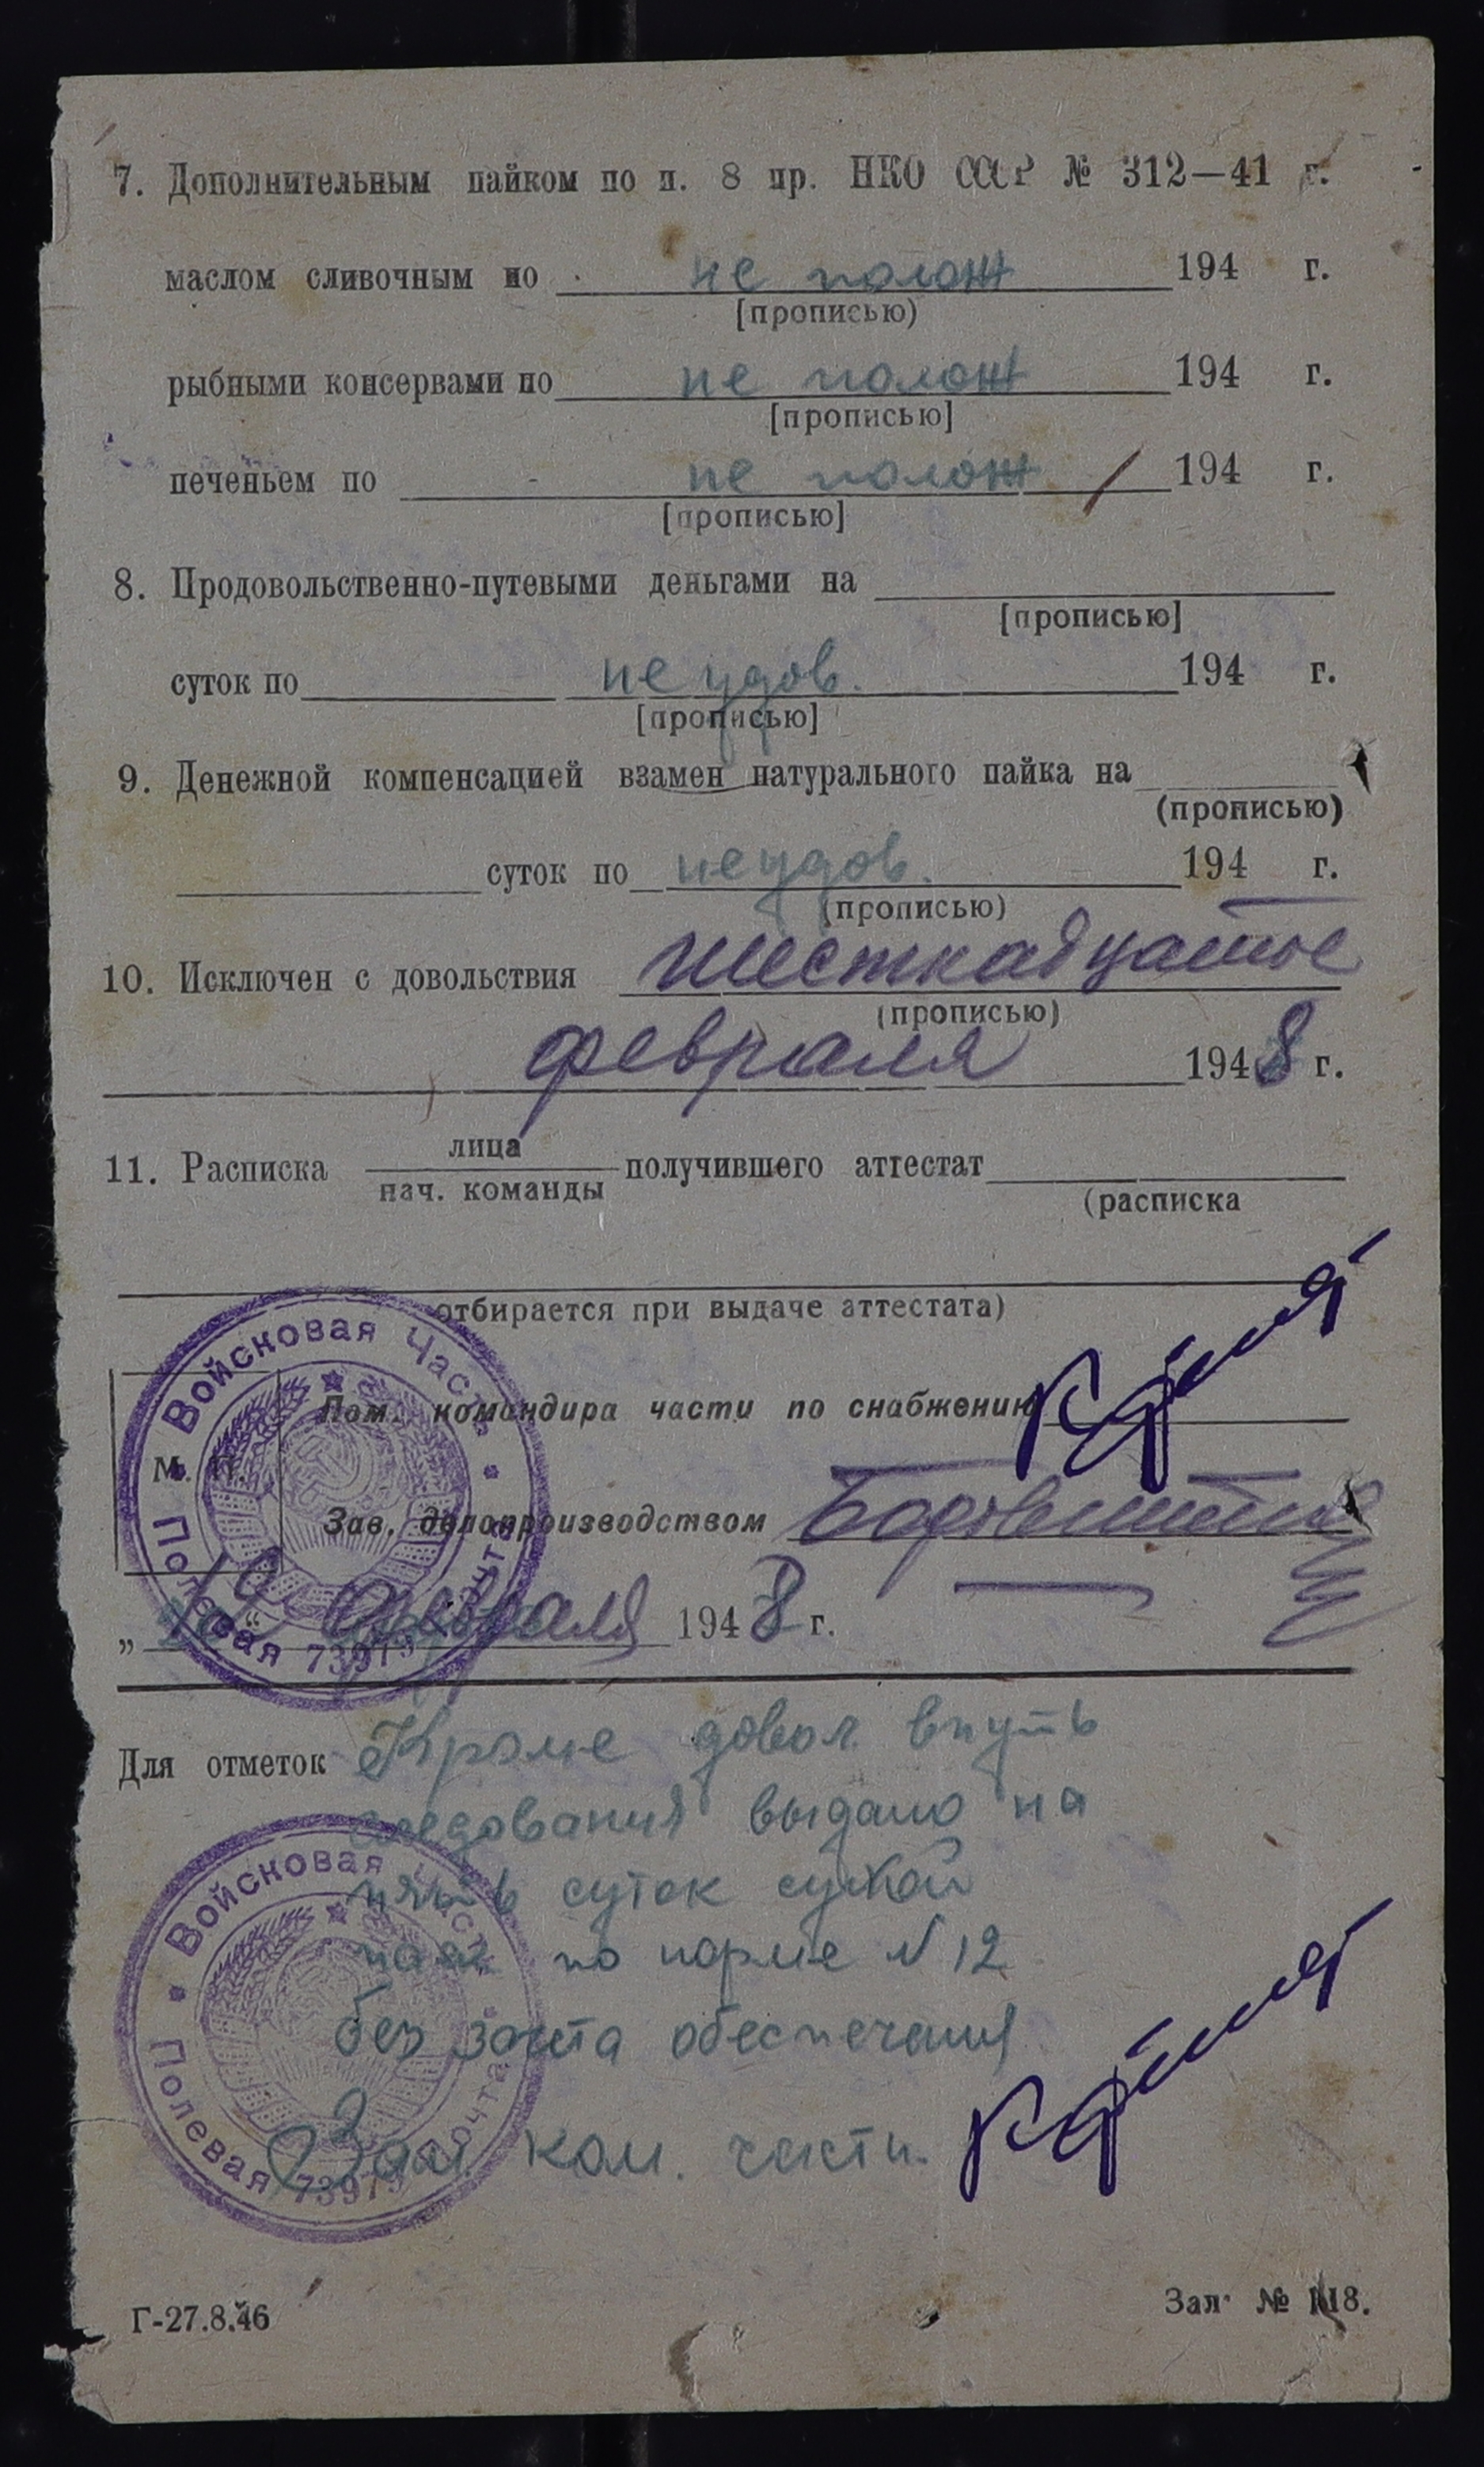 7. Дополнительным пайком по п. 8 пр. НКО СССР № 312—41 г.
маслом сливочным по не полож 194 г.
[прописью)
рыбными консервами по не полож 194 г.
[прописью]
печеньем по не полож 194 г.
[прописью]
8. Продовольственно-путевыми деньгами на
[прописью]
суток по не удов. 194 г.
[прописью]
9. Денежной компенсацией взамен натурального пайка на
(прописью)
суток по неудов. 194 г.
(прописью)
10. Исключен с довольствия шестнадцатое
(прописью)
февраля 1948 г.
11. Расписка лица получившего аттестат
нач. команды
(расписка
отбирается при выдаче аттестата)
Войсковая Часть
Пом. командира части по снабжению
М. П.
Зав. делопроизводством
Полевая Почта 73979
„ “ февраля 1948 г.
Для отметок Кроме довол. впуть
следования выдано на
пять суток сухой
паек по норме № 12
без зачта обеспечания
Войсковая Часть
Полевая Почта 73979
Зам. ком. части.
Г-27.8.46
Зал. № 118.